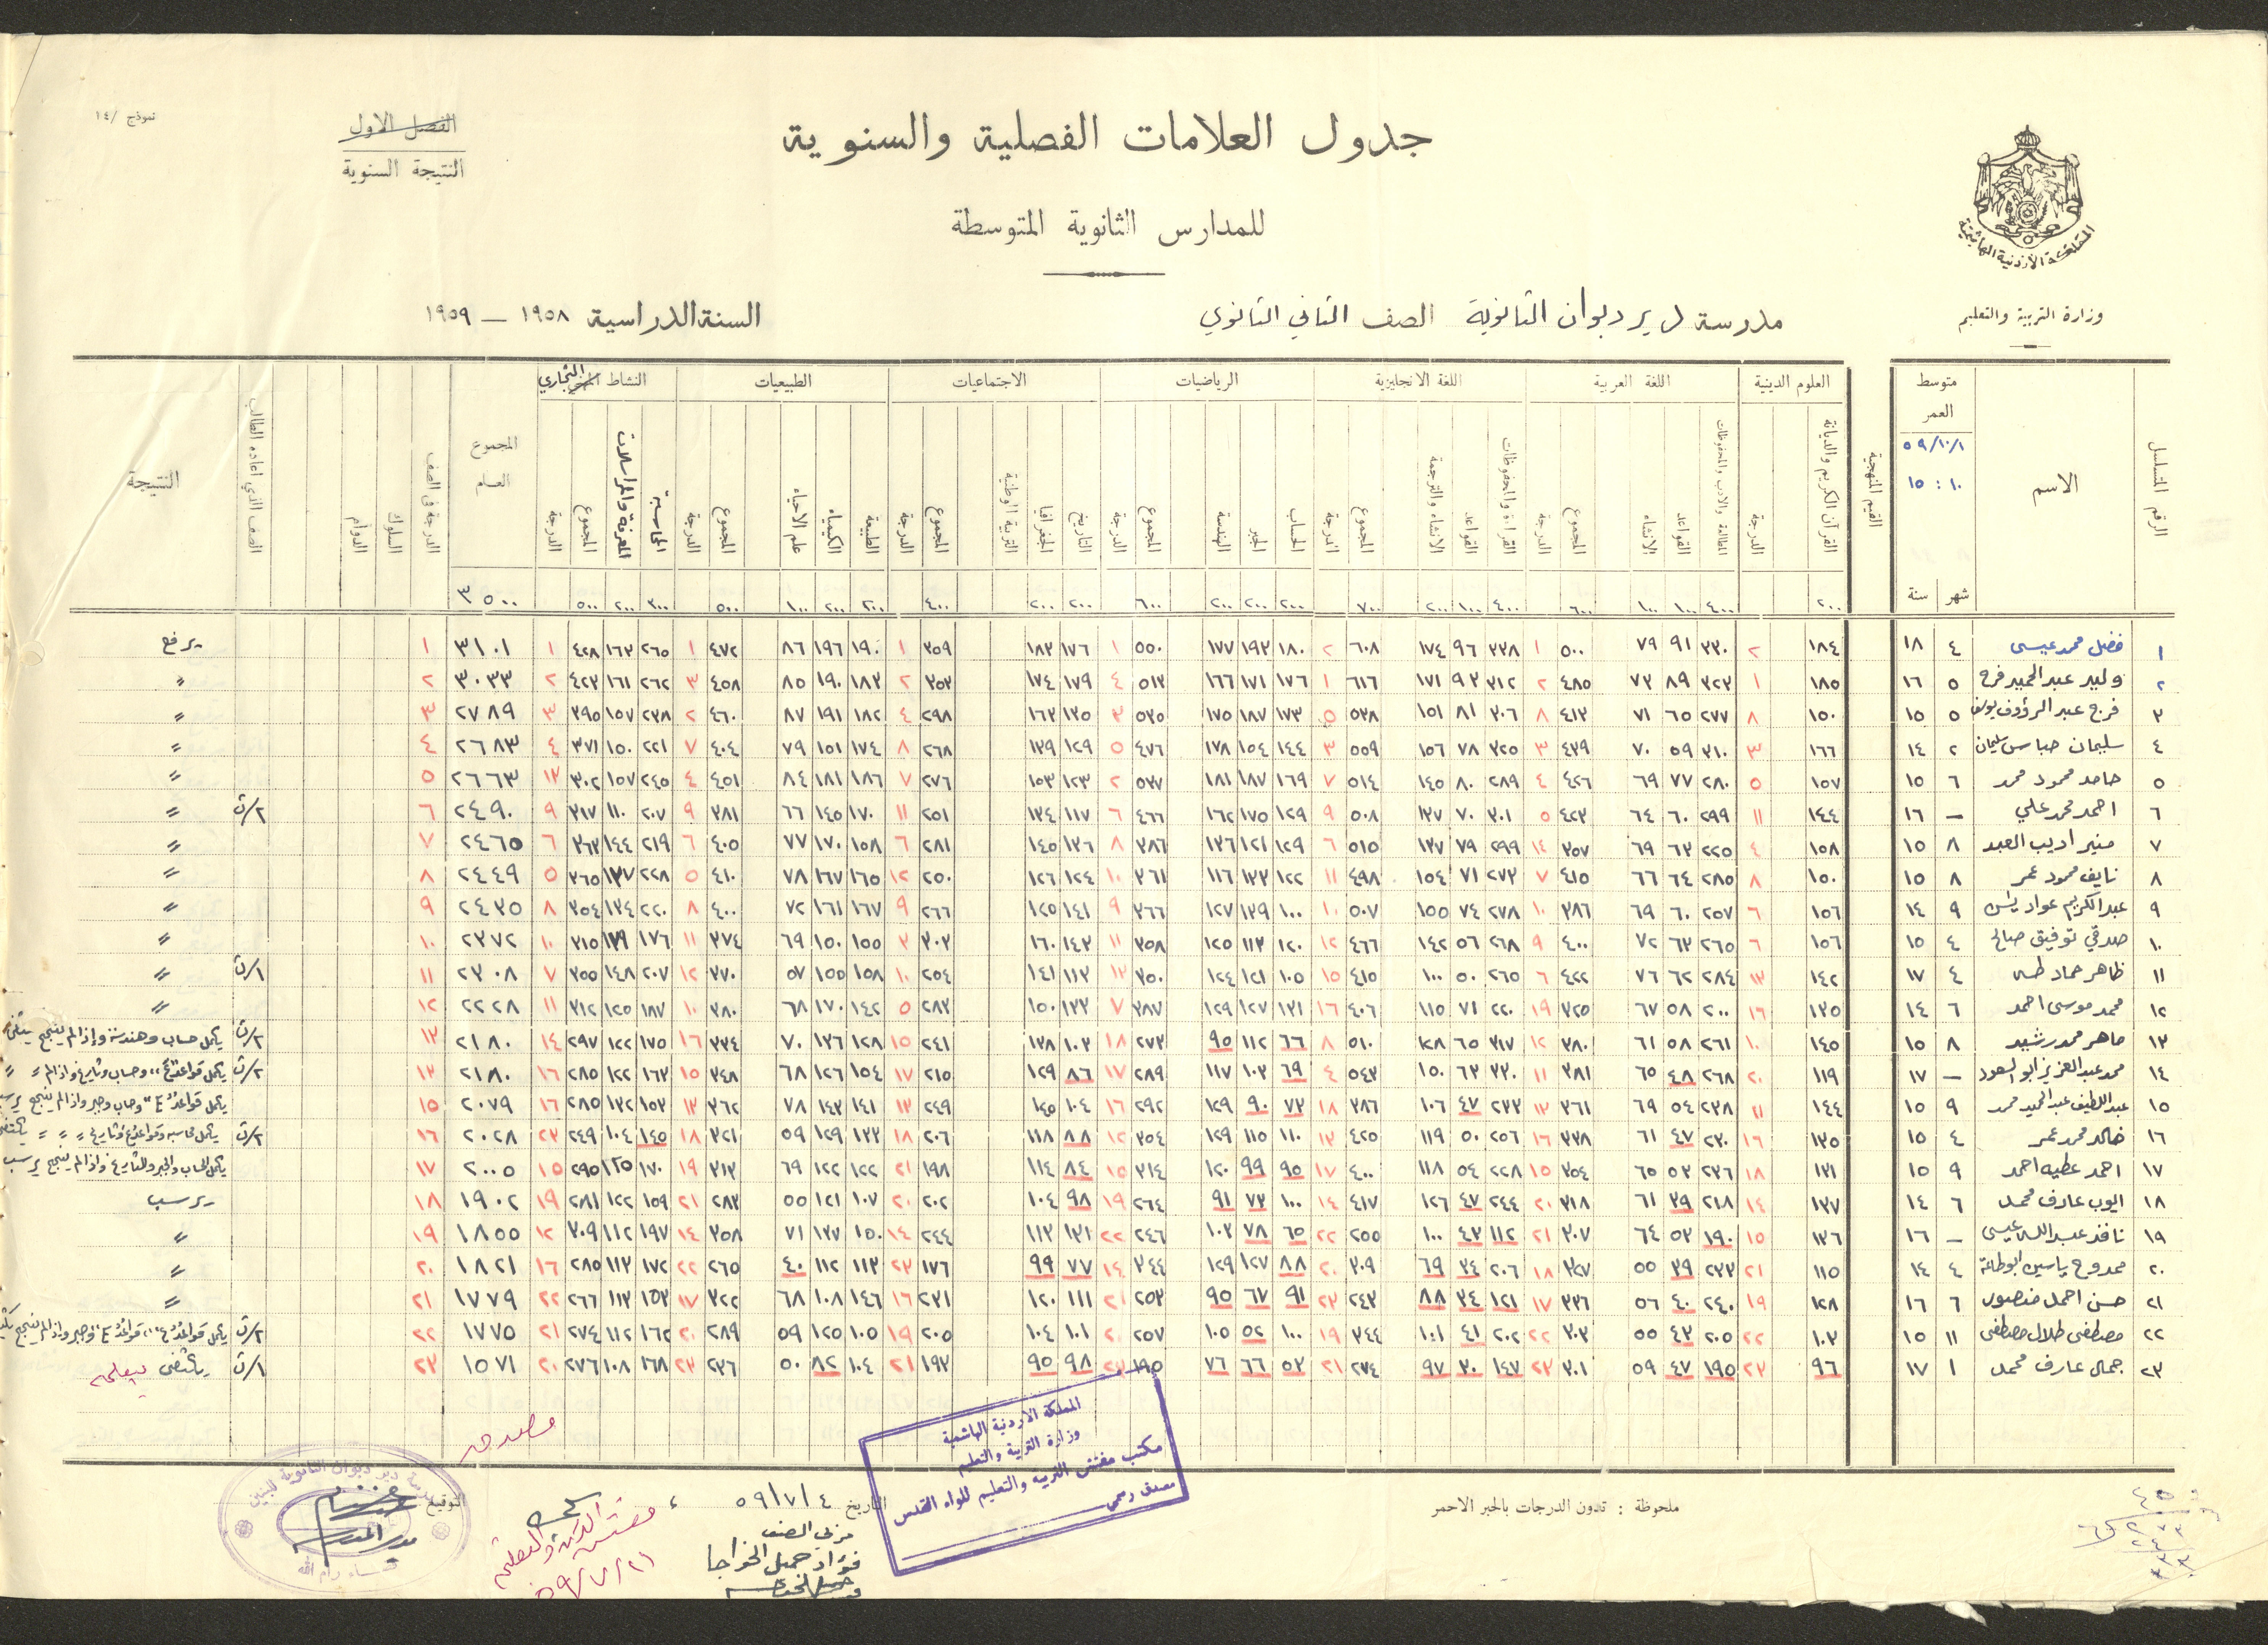 نموذج /١٤
الفصل الاول
النتيجة السنوية
جدول العلامات الفصلية والسنوية
للمدارس الثانوية المتوسطة
المملكة الأردنية الهاشمية
وزارة التربية والتعليم
مدرسة دير ديوان الثانوية الصف الثاني الثانوي
السنة الدراسية ١٩٥٨ – ١٩٥٩
الرقم المتسلسل
الاسم
متوسط العمر
٥٩/١٠/١
١٠ : ١٥
شهر سنة
القيم المنهجية
العلوم الدينية
القرآن الكريم والديانة الدرجة
اللغة العربية
المطالعة والادب والمحفوظات القواعد الانشاء المجموع الدرجة
اللغة الانجليزية
القراءة والمحفوظات القواعد الانشاء والترجمة المجموع الدرجة
الرياضيات
الحساب الجبر الهندسة المجموع الدرجة
الاجتماعيات
التاريخ الجغرافيا التربية الوطنية المجموع الدرجة
الطبيعيات
الطبيعة الكيمياء علم الاحياء المجموع الدرجة
النشاط التجاري
المحاسبة المعرفة والمراسلات المجموع الدرجة
المجموع العام
الدرجة في الصف
السلوك
الدوام
الصف الذي اعاده الطالب
النتيجة
٢٠٠ ٤٠٠ ١٠٠ ١٠٠ ٦٠٠ ٤٠٠ ١٠٠ ٢٠٠ ٧٠٠ ٢٠٠ ٢٠٠ ٢٠٠ ٦٠٠ ٢٠٠ ٢٠٠ ٤٠٠ ٢٠٠ ٢٠٠ ١٠٠ ٥٠٠ ٣٠٠ ٢٠٠ ٥٠٠ ٣٥٠٠
١ فضل محمد عيسى ٤ ١٨ ١٨٤ ٢ ٣٣٠ ٩١ ٧٩ ٥٠٠ ١ ٣٣٨ ٩٦ ١٧٤ ٦٠٨ ٢ ١٨٠ ١٩٣ ١٧٧ ٥٥٠ ١ ١٧٦ ١٨٣ ٣٥٩ ١ ١٩٠ ١٩٦ ٨٦ ٤٧٢ ١ ٢٦٥ ١٦٣ ٤٢٨ ١ ٣١٠١ ١ يرفع
٢ وليد عبد الحميد فرح ٥ ١٦ ١٨٥ ١ ٣٢٣ ٨٩ ٧٣ ٤٨٥ ٢ ٣١٢ ٩٣ ١٧١ ٦١٦ ١ ١٧٦ ١٧١ ١٦٦ ٥١٣ ٤ ١٧٩ ١٧٤ ٣٥٣ ٢ ١٨٣ ١٩٠ ٨٥ ٤٥٨ ٣ ٢٦٢ ١٦١ ٤٢٣ ٢ ٣٠٣٣ ٢ "
٣ فرج عبد الرؤوف يوسف ٥ ١٥ ١٥٠ ٨ ٢٧٧ ٦٥ ٧١ ٤١٣ ٨ ٣٠٦ ٨١ ١٥١ ٥٣٨ ٥ ١٧٣ ١٨٧ ١٧٥ ٥٣٥ ٣ ١٣٥ ١٦٣ ٢٩٨ ٤ ١٨٢ ١٩١ ٨٧ ٤٦٠ ٢ ٢٣٨ ١٥٧ ٣٩٥ ٣ ٢٧٨٩ ٣ "
٤ سليمان عباس سليمان ٢ ١٤ ١٦٦ ٣ ٣١٠ ٥٩ ٧٠ ٤٣٩ ٣ ٣٢٥ ٧٨ ١٥٦ ٥٥٩ ٣ ١٤٤ ١٥٤ ١٧٨ ٤٧٦ ٥ ١٢٩ ١٣٩ ٢٦٨ ٨ ١٧٤ ١٥١ ٧٩ ٤٠٤ ٧ ٢٢١ ١٥٠ ٣٧١ ٤ ٢٦٨٣ ٤ "
٥ حامد محمود محمد ٦ ١٥ ١٥٧ ٥ ٢٨٠ ٧٧ ٦٩ ٤٢٦ ٤ ٢٨٩ ٨٠ ١٤٥ ٥١٤ ٧ ١٦٩ ١٨٧ ١٨١ ٥٣٧ ٢ ١٢٣ ١٥٣ ٢٧٦ ٧ ١٨٦ ١٨١ ٨٤ ٤٥١ ٤ ٢٤٥ ١٥٧ ٣٠٢ ١٣ ٢٦٦٣ ٥ "
٦ احمد محمد علي – ١٦ ١٤٤ ١١ ٢٩٩ ٦٠ ٦٤ ٤٢٣ ٥ ٣٠١ ٧٠ ١٣٧ ٥٠٨ ٩ ١٢٩ ١٧٥ ١٦٢ ٤٦٦ ٦ ١١٧ ١٣٤ ٢٥١ ١١ ١٧٠ ١٤٥ ٦٦ ٣٨١ ٩ ٢٠٧ ١١٠ ٣١٧ ٩ ٢٤٩٠ ٦ ٢/ث "
٧ منير اديب العبد ٨ ١٥ ١٥٨ ٤ ٢٢٥ ٦٣ ٦٩ ٣٥٧ ١٤ ٢٩٩ ٧٩ ١٣٧ ٥١٥ ٦ ١٢٩ ١٢١ ١٣٦ ٣٨٦ ٨ ١٣٦ ١٤٥ ٢٨١ ٦ ١٥٨ ١٧٠ ٧٧ ٤٠٥ ٦ ٢١٩ ١٤٤ ٣٦٣ ٦ ٢٤٦٥ ٧ "
٨ نايف محمود عمر ٨ ١٥ ١٥٠ ٨ ٢٨٥ ٦٤ ٦٦ ٤١٥ ٧ ٢٧٣ ٧١ ١٥٤ ٤٩٨ ١١ ١٢٢ ١٣٣ ١١٦ ٣٦١ ١٠ ١٢٤ ١٢٦ ٢٥٠ ١٢ ١٦٥ ١٦٧ ٧٨ ٤١٠ ٥ ٢٢٨ ١٣٧ ٣٦٥ ٥ ٢٤٤٩ ٨ "
٩ عبد الكريم عواد ٩ ١٤ ١٥٦ ٦ ٢٥٧ ٦٠ ٦٩ ٣٨٦ ١٠ ٢٧٨ ٧٤ ١٥٥ ٥٠٧ ١٠ ١٠٠ ١٣٩ ١٢٧ ٣٦٦ ٩ ١٤١ ١٢٥ ٢٦٦ ٩ ١٦٧ ١٦١ ٧٢ ٤٠٠ ٨ ٢٢٠ ١٣٤ ٣٥٤ ٨ ٢٤٣٥ ٩ "
١٠ صدقي توفيق صالح ٤ ١٥ ١٥٦ ٦ ٢٦٥ ٦٣ ٧٢ ٤٠٠ ٩ ٢٦٨ ٥٦ ١٤٢ ٤٦٦ ١٢ ١٢٠ ١١٣ ١٢٥ ٣٥٨ ١١ ١٤٣ ١٦٠ ٣٠٣ ٣ ١٥٥ ١٥٠ ٦٩ ٣٧٤ ١١ ١٧٦ ١٣٩ ٣١٥ ١٠ ٢٣٧٢ ١٠ "
١١ ظاهر حماد طه ٤ ١٧ ١٤٢ ١٣ ٢٨٤ ٦٢ ٧٦ ٤٢٢ ٦ ٢٦٥ ٥٠ ١٠٠ ٤١٥ ١٥ ١٠٥ ١٢١ ١٢٤ ٣٥٠ ١٣ ١١٣ ١٤١ ٢٥٤ ١٠ ١٥٨ ١٥٥ ٥٧ ٣٧٠ ١٢ ٢٠٧ ١٤٨ ٣٥٥ ٧ ٢٣٠٨ ١١ ١/ث "
١٢ محمد موسى احمد ٦ ١٤ ١٣٥ ١٦ ٢٠٠ ٥٨ ٦٧ ٣٢٥ ١٩ ٢٢٠ ٧١ ١١٥ ٤٠٦ ١٦ ١٣١ ١٢٧ ١٢٩ ٣٨٧ ٧ ١٣٣ ١٥٠ ٢٨٣ ٥ ١٤٢ ١٧٠ ٦٨ ٣٨٠ ١٠ ١٨٧ ١٢٥ ٣١٢ ١١ ٢٢٢٨ ١٢ "
١٣ ماهر محمد رشيد ٨ ١٥ ١٤٥ ١٠ ٢٦١ ٥٨ ٦١ ٣٨٠ ١٢ ٣١٧ ٦٥ ١٢٨ ٥١٠ ٨ ٦٦ ١١٢ ٩٥ ٢٧٣ ١٨ ١٠٣ ١٣٨ ٢٤١ ١٥ ١٢٨ ١٣٦ ٧٠ ٣٣٤ ١٦ ١٧٥ ١٢٢ ٢٩٧ ١٤ ٢١٨٠ ١٣ ٢/ث يكمل حساب وهندسة وإذا لم ينجح
١٤ محمد عبد العزيز ابو السعود – ١٧ ١١٩ ٢٠ ٢٦٨ ٤٨ ٦٥ ٣٨١ ١١ ٣٣٠ ٦٣ ١٥٠ ٥٤٣ ٤ ٦٩ ١٠٣ ١١٧ ٢٨٩ ١٧ ٨٦ ١٢٩ ٢١٥ ١٧ ١٥٤ ١٢٦ ٦٨ ٣٤٨ ١٥ ١٦٣ ١٢٢ ٢٨٥ ١٦ ٢١٨٠ ١٣ ٢/ث يكمل قواعد "ع" وحساب وتاريخ واذا لم " "
١٥ عبد اللطيف عبد الحميد محمد ٩ ١٥ ١٤٤ ١١ ٢٣٨ ٥٤ ٦٩ ٣٦١ ١٣ ٢٣٣ ٤٧ ١٠٦ ٣٨٦ ١٨ ٧٣ ٩٠ ١٢٩ ٢٩٢ ١٦ ١٠٤ ١٤٥ ٢٤٩ ١٣ ١٤١ ١٤٣ ٧٨ ٣٦٢ ١٣ ١٥٣ ١٣٢ ٢٨٥ ١٦ ٢٠٧٩ ١٥ وحساب وجبر واذا لم ينجح يرسب
١٦ خالد محمد عمر ٤ ١٥ ١٣٥ ١٦ ٢٣٠ ٤٧ ٦١ ٣٣٨ ١٦ ٢٥٦ ٥٠ ١١٩ ٤٢٥ ١٣ ١١٠ ١١٥ ١٢٩ ٣٥٤ ١٢ ٨٨ ١١٨ ٢٠٦ ١٨ ١٣٣ ١٢٩ ٥٩ ٣٢١ ١٨ ١٤٥ ١٠٤ ٢٤٩ ٢٣ ٢٠٢٨ ١٦ ٢/ث يكمل محاسبة وقواعد "ع" وتاريخ " " "
١٧ احمد عطيه احمد ٩ ١٥ ١٣١ ١٨ ٢٣٦ ٥٣ ٦٥ ٣٥٤ ١٥ ٢٢٨ ٥٤ ١١٨ ٤٠٠ ١٧ ٩٥ ٩٩ ١٢٠ ٣١٤ ١٥ ٨٤ ١١٤ ١٩٨ ٢١ ١٢٢ ١٢٢ ٦٩ ٣١٣ ١٩ ١٧٠ ١٢٥ ٢٩٥ ١٥ ٢٠٠٥ ١٧ يكمل الحساب والجبر والتاريخ واذا لم ينجح يرسب
١٨ ايوب عارف محمد ٦ ١٤ ١٣٧ ١٤ ٢١٨ ٣٩ ٦١ ٣١٨ ٢٠ ٢٤٤ ٤٧ ١٢٦ ٤١٧ ١٤ ١٠٠ ٧٣ ٩١ ٢٦٤ ١٩ ٩٨ ١٠٤ ٢٠٢ ٢٠ ١٠٧ ١٢١ ٥٥ ٢٨٣ ٢١ ١٥٩ ١٢٢ ٢٨١ ١٩ ١٩٠٢ ١٨ يرسب
١٩ نافذ عبد الله عيسى – ١٦ ١٣٦ ١٥ ١٩٠ ٥٣ ٦٤ ٣٠٧ ٢١ ١١٢ ٤٣ ١٠٠ ٢٥٥ ٢٢ ٦٥ ٧٨ ١٠٣ ٢٤٦ ٢٢ ١٣١ ١١٣ ٢٤٤ ١٤ ١٥٠ ١٣٧ ٧١ ٣٥٨ ١٤ ١٩٧ ١١٢ ٣٠٩ ١٢ ١٨٥٥ ١٩ "
٢٠ ممدوح ياسين ابوطاعة ٤ ١٤ ١١٥ ٢١ ٢٣٣ ٣٩ ٥٥ ٣٢٧ ١٨ ٢٠٦ ٣٤ ٦٩ ٣٠٩ ٢٠ ٨٨ ١٢٧ ١٢٩ ٣٤٤ ١٤ ٧٧ ٩٩ ١٧٦ ٢٣ ١١٣ ١١٢ ٤٠ ٢٦٥ ٢٢ ١٧٢ ١١٣ ٢٨٥ ١٦ ١٨٢١ ٢٠ "
٢١ حسن احمد منصور ٦ ١٦ ١٢٨ ١٩ ٢٤٠ ٤٠ ٥٦ ٣٣٦ ١٧ ١٢١ ٣٤ ٨٨ ٢٤٣ ٢٣ ٩١ ٦٧ ٩٥ ٢٥٣ ٢١ ١١١ ١٢٠ ٢٣١ ١٦ ١٤٦ ١٠٨ ٦٨ ٣٢٢ ١٧ ١٥٣ ١١٣ ٢٦٦ ٢٢ ١٧٧٩ ٢١ "
٢٢ مصطفى طلال مصطفى ١١ ١٥ ١٠٣ ٢٢ ٢٠٥ ٤٣ ٥٥ ٣٠٣ ٢٢ ٢٠٢ ٤١ ١٠١ ٣٤٤ ١٩ ١٠٠ ٥٢ ١٠٥ ٢٥٧ ٢٠ ١٠١ ١٠٤ ٢٠٥ ١٩ ١٠٥ ١٢٥ ٥٩ ٢٨٩ ٢٠ ١٦٢ ١١٢ ٢٧٤ ٢١ ١٧٧٥ ٢٢ ٢/ث وجبر واذا لم ينجح
٢٣ جمال عارف محمد ١ ١٧ ٩٦ ٢٣ ١٩٥ ٤٧ ٥٩ ٣٠١ ٢٣ ١٤٧ ٣٠ ٩٧ ٢٧٤ ٢١ ٥٣ ٦٦ ٧٦ ١٩٥ ٢٣ ٩٨ ٩٥ ١٩٣ ٢١ ١٠٤ ٨٢ ٥٠ ٢٣٦ ٢٣ ١٦٨ ١٠٨ ٢٧٦ ٢٠ ١٥٧١ ٢٣ ١/ث يكتفى بتعليمه
ملحوظة : تدون الدرجات بالحبر الاحمر
المملكة الاردنية الهاشمية
وزارة التربية والتعليم
مكتب مفتش التربيه والتعليم للواء القدس
مصدق رسمي
التاريخ ٥٩/٧/٤
مربي الصف
فؤاد جميل الخواجا
مصدق
مفتش التربية والتعليم
٥٩/٧/٢١
التوقيع
مدير المدرسة
مدرسة دير ديوان الثانوية للبنين
قضاء رام الله